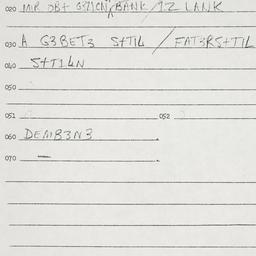 020 MIR OBT G371CN BANK / 12 LANK
030 A G3BET3 S+TIL / FAT3RS+TIL
040 S+TILN
050
051 052
060 DEMB3N3
070 —